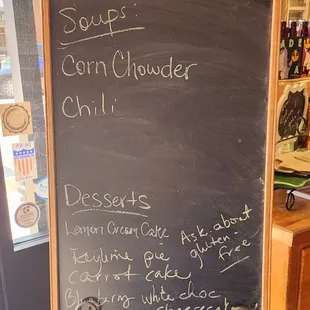 Soups:
Corn Chowder
Chili
Desserts
Lemon Cream Cake
Keylime pie
carrot cake
Blueberry white choc
cheesecake
Ask about
gluten-
free